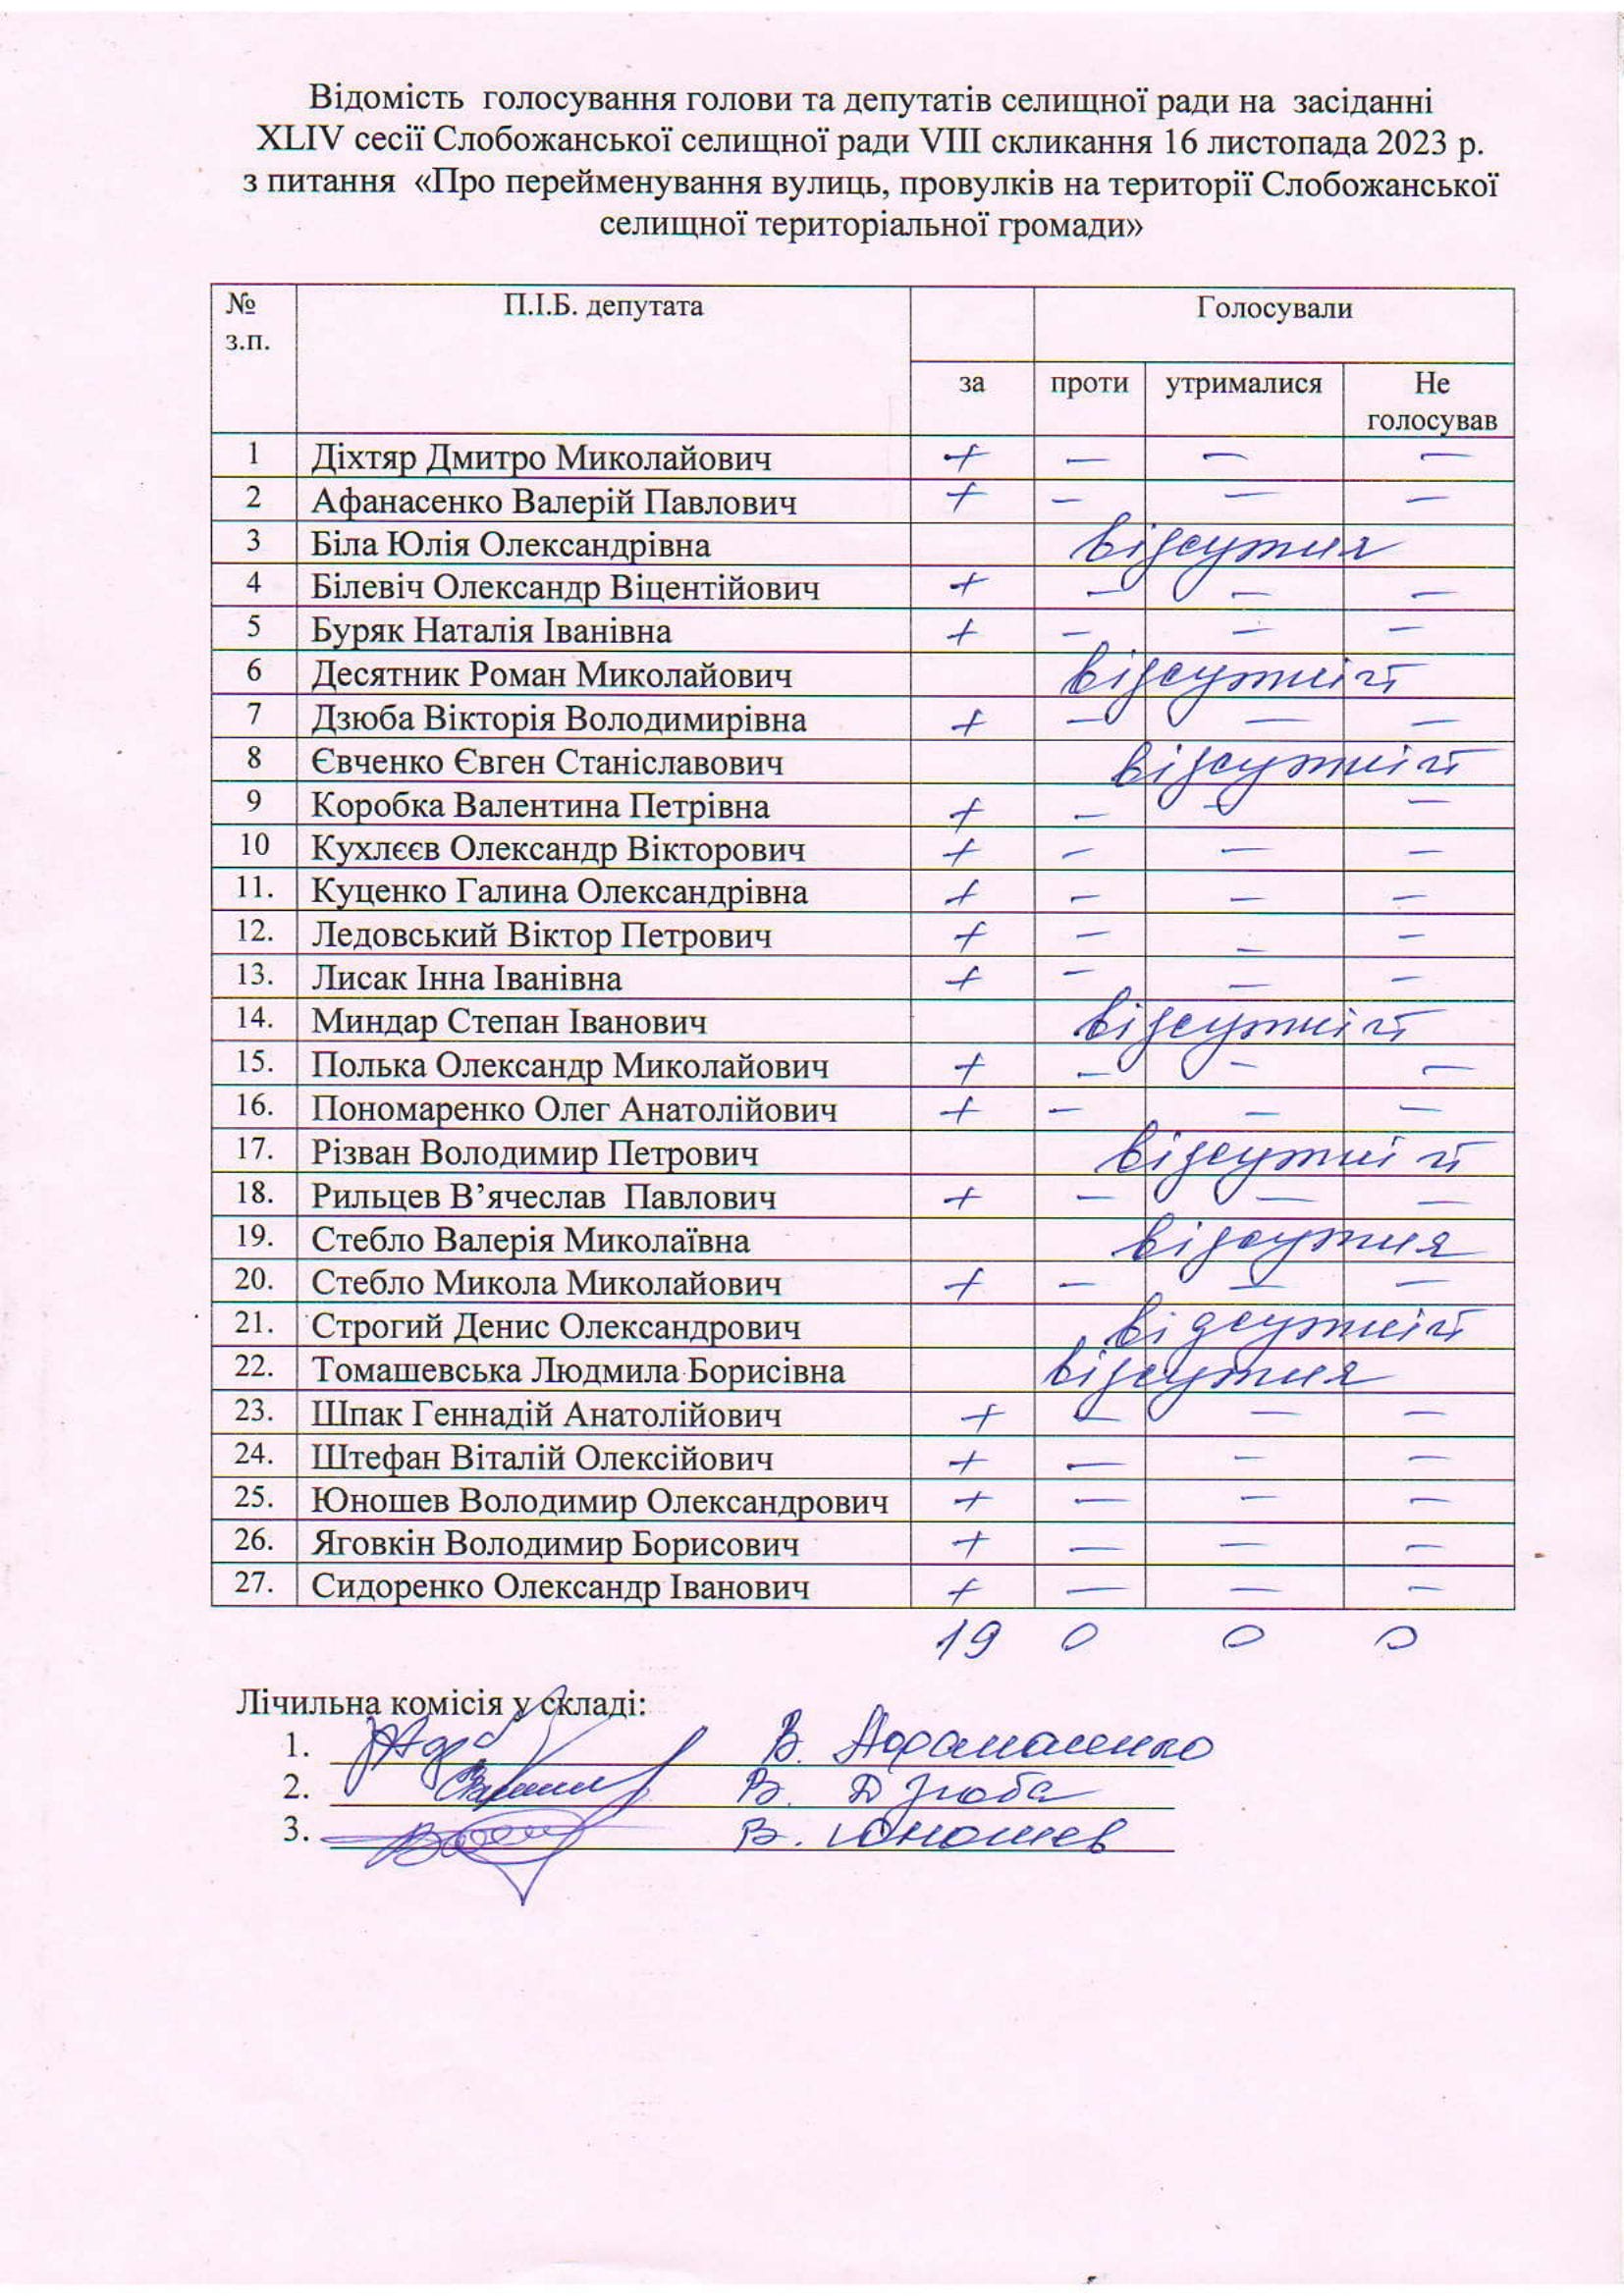 Відомість голосування голови та депутатів селищної ради на засіданні
XLIV сесії Слобожанської селищної ради VIII скликання 16 листопада 2023 р.
з питання «Про перейменування вулиць, провулків на території Слобожанської
селищної територіальної громади»
№ з.п. П.І.Б. депутата Голосували
за проти утрималися Не голосував
1 Діхтяр Дмитро Миколайович + — — —
2 Афанасенко Валерій Павлович + — — —
3 Біла Юлія Олександрівна відсутня
4 Білевіч Олександр Віцентійович + — — —
5 Буряк Наталія Іванівна + — — —
6 Десятник Роман Миколайович відсутній
7 Дзюба Вікторія Володимирівна + — — —
8 Євченко Євген Станіславович відсутній
9 Коробка Валентина Петрівна + — — —
10 Кухлєєв Олександр Вікторович + — — —
11. Куценко Галина Олександрівна + — — —
12. Ледовський Віктор Петрович + — — —
13. Лисак Інна Іванівна + — — —
14. Миндар Степан Іванович відсутній
15. Полька Олександр Миколайович + — — —
16. Пономаренко Олег Анатолійович + — — —
17. Різван Володимир Петрович відсутній
18. Рильцев В’ячеслав Павлович + — — —
19. Стебло Валерія Миколаївна відсутня
20. Стебло Микола Миколайович + — — —
21. Строгий Денис Олександрович відсутній
22. Томашевська Людмила Борисівна відсутня
23. Шпак Геннадій Анатолійович + — — —
24. Штефан Віталій Олексійович + — — —
25. Юношев Володимир Олександрович + — — —
26. Яговкін Володимир Борисович + — — —
27. Сидоренко Олександр Іванович + — — —
19 0 0 0
Лічильна комісія у складі:
1. В. Афанасенко
2. В. Дзюба
3. В. Юношев